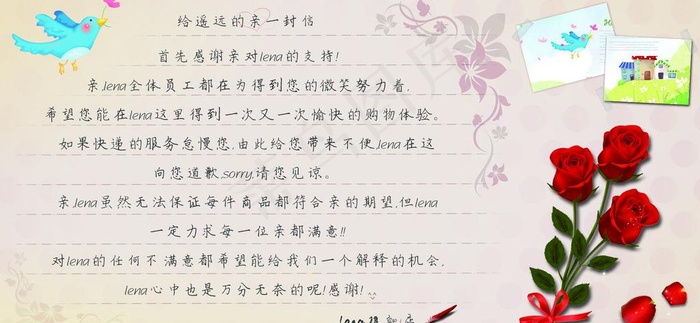 给遥远的亲一封信
首先感谢亲对lena的支持!
亲,lena全体员工都在为得到您的微笑努力着,
希望您能在lena这里得到一次又一次愉快的购物体验。
如果快递的服务怠慢您,由此给您带来不便,lena在这
向您道歉,sorry,请您见谅。
亲,lena虽然无法保证每件商品都符合亲的期望,但lena
一定力求每一位亲都满意!!
对lena的任何不满意都希望能给我们一个解释的机会,
lena心中也是万分无奈的呢!感谢!
lena